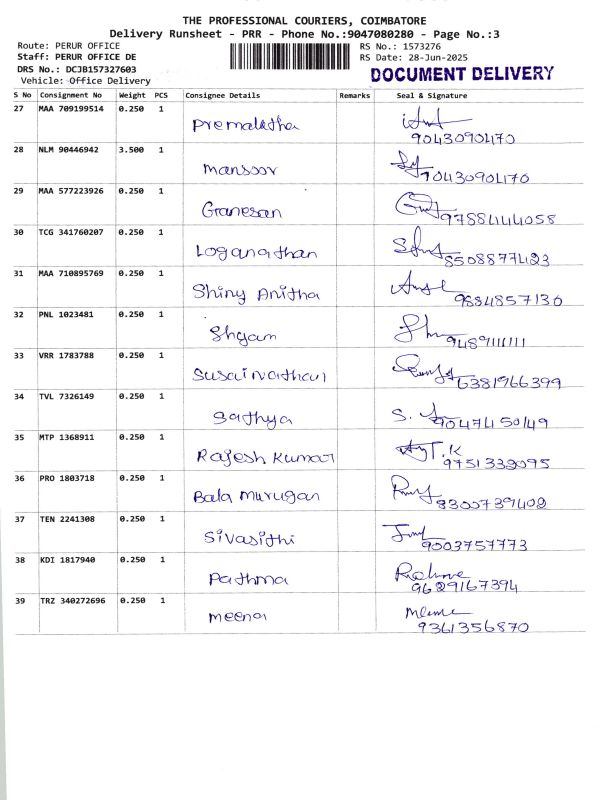 THE PROFESSIONAL COURIERS, COIMBATORE
Delivery Runsheet - PRR - Phone No.:9047080280 - Page No.:3
Route: PERUR OFFICE RS No.: 1573276
Staff: PERUR OFFICE DE RS Date: 28-Jun-2025
DRS No.: DCJB157327603 DOCUMENT DELIVERY
Vehicle: Office Delivery
S No Consignment No Weight PCS Consignee Details Remarks Seal & Signature
27 MAA 709199514 0.250 1
Premalatha
9043090470
28 NLM 90446942 3.500 1
Mansoor
9043090470
29 MAA 577223926 0.250 1
Granesan
9788444058
30 TCG 341760207 0.250 1
Loganathan
8508877423
31 MAA 710895769 0.250 1
Shiny Anitha
9884857130
32 PNL 1023481 0.250 1
Shyam
9489111111
33 VRR 1783788 0.250 1
Susainathan
6381966399
34 TVL 7326149 0.250 1
Sathya
9047450149
35 MTP 1368911 0.250 1
Rajesh Kumar
T.K
9751333095
36 PRO 1803718 0.250 1
Bala Murugan
8300739402
37 TEN 2241308 0.250 1
Sivasithi
9003757773
38 KDI 1817940 0.250 1
Pathma
9629167394
39 TRZ 340272696 0.250 1
meena
9361356870